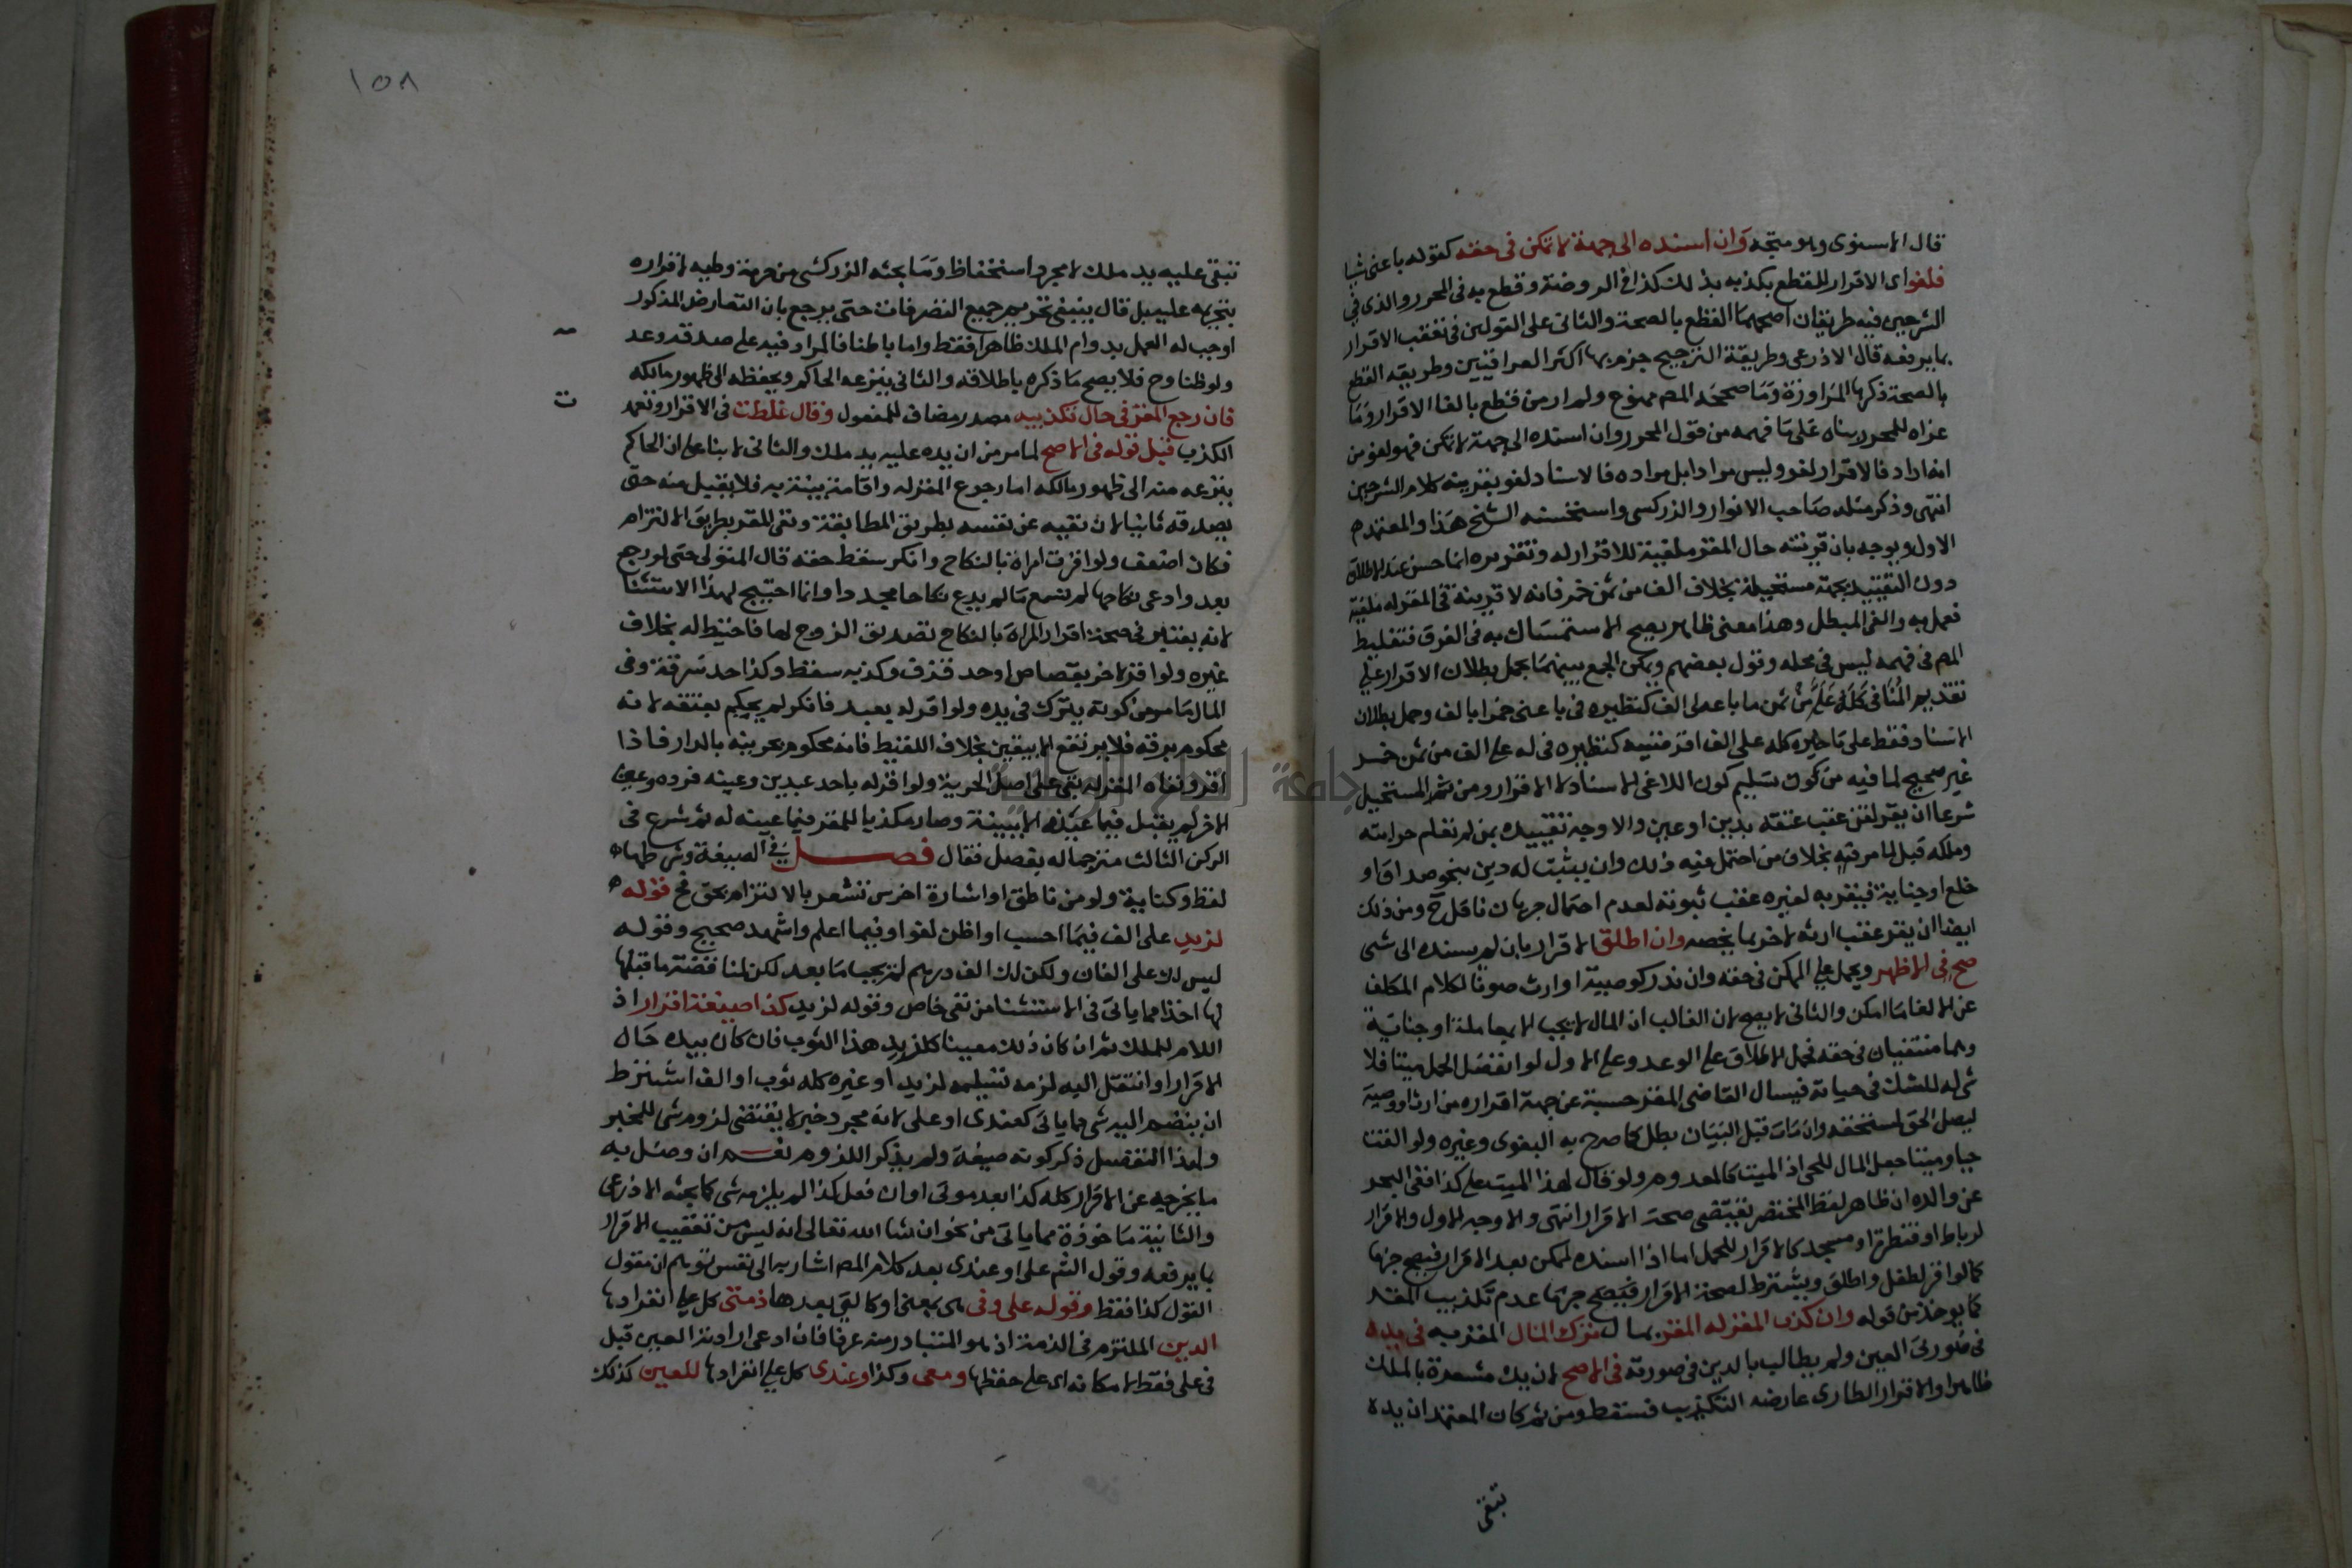 قال الاسنوى وهو متجه وان اسنده الى جهة لا تمكن فى حقه كقوله باعنى شيا
فلغو اى الاقرار للقطع بكذبه بذلك كذا فى الروضة وقطع به فى المحرر والذى فى
الشرحين فيه طريقان اصحهما القطع بالصحة والثانى على القولين فى تعقب الاقرار
بما يرفعه قال الاذرعى وطريقة الترجيح جزم بها اكثر العراقيين وطريقة القطع
بالصحة ذكرها المراوزة وما صححه المص ممنوع ولم ار من قطع بالغا الاقرار وما
عزاه للمحرر بناه على ما فهمه من قول المحرر وان اسنده الى جهة لا تمكن فهو لغو من
انه اراد فالاقرار لغو وليس مرادا بل مراده فالاسناد لغو بقرينة كلام الشرحين
انتهى وذكر مثله صاحب الانوار والزركشى واستحسنه الشيخ هذا والمعتمد م
الاول ويوجه بان قرينة حال المقر ملغية للاقرار له وتقديره انما حسن عند الاطلاق
دون التقييد بجهة مستحيلة بخلاف الف من ثمن خمر فانه لا قرينة فى المقر له ملغية
فعمل به والغى المبطل وهذا معنى ظاهر يصح الاستمساك به فى الفرق فتغليط
المص فى فهمه ليس فى محله وقول بعضهم ويمكن الجمع بينهما بحمل بطلان الاقرار على
تقديم المنافى كله على من ثمن ما باعه لى الف كنظيره فى باعنى خمرا بالف وحمل بطلان
الاسناد فقط على تاخيره كله على الف اقترضنيه كنظيره فى له على الف من ثمن خمر
غير صحيح لما فيه من كون تسليم كون اللاغى الاسناد لا الاقرار ومن ثم المستحيل
شرعا ان يقر لقن عقب عتقه بدين او عين والاوجه تقييده بمن لم تعلم حرابته
وملكه قبل لما مر فيه بخلاف من احتمل فيه ذلك وان يثبت له دين بنحو صداق او
خلع او جناية فيقر به لغيره عقب ثبوته لعدم احتمال جريان ناقل ح ومن ذلك
ايضا ان يقر عقب ارثه لاخر بما يخصه وان اطلق الاقرار بان لم يسنده الى شى
صح فى الاظهر ويحمل على الممكن فى حقه وان ندر كوصية او ارث صونا لكلام المكلف
عن الالغا ما امكن والثانى لا يصح لان الغالب ان المال لا يجب الا بمعاملة او جناية
وهما منتفيان فى حقه فحمل الاطلاق على الوعد وعلى الاول لو انفصل الحمل ميتا فلا
شى له للشك فى حياته فيسال القاضى المقر حسبة عن جهة اقراره من ارث او وصية
ليصل الحق لمستحقه وان مات قبل البيان بطل كما صرح به البغوى وغيره ولو القت
حيا وميتا جعل المال للحى اذ الميت كالمعدوم ولو قال لهذا الميت على كذا ففى البحر
عن والده ان ظاهر لفظ المختصر يقتضى صحة الاقرار انتهى والاوجه الاول والاقرار
لرباط او قنطرة او مسجد كالاقرار للحمل اما اذا اسنده لممكن بعد الاقرار فيصح جزما
كما لو اقر لطفل واطلق ويشترط لصحة الاقرار فيصح جزما عدم تكذيب المقر
كما يوخذ من قوله وان كذب المقر له المقر بمال ترك المال المقر به فى يده
فى صورتى العين ولم يطالب بالدين فى صورته فى الاصح لان يده مشعرة بالملك
ظاهرا والاقرار الطارى عارضه التكذيب فسقط ومن ثم كان المعتمد ان يده
تبقى
١٥٨
تبقى عليه يد ملك لا مجرد استحفاظ وما بحثه الزركشى من حرمة وطيه لاقراره
بتحريمه عليه بل قال ينبغى تحريم جميع التصرفات حتى يرجع بان التعارض المذكور
اوجب له العمل بدوام الملك ظاهرا فقط واما باطنا فالمدار فيه على صدقه وعد
ولو ظنا وح فلا يصح ما ذكره باطلاقه والثانى ينزعه الحاكم ويحفظه الى ظهور مالكه
فان رجع المقر فى حال تكذيبه مصدر مضاف للمفعول وقال غلطت فى الاقرار وتعمد
الكذب قبل قوله فى الاصح لما مر من ان يده عليه يد ملك والثانى لا بنا على ان الحاكم
ينزعه منه الى ظهور مالكه اما رجوع المقر له واقامته بينة به فلا يقبل منه حتى
يصدقه ثانيا لان نفيه عن نفسه بطريق المطابقة ونفى المقر بطريق الالتزام
فكان اضعف ولو اقرت امراة بالنكاح وانكر سقط حقه قال المتولى حتى لو رجع
بعد وادعى نكاحها لم تسمع ما لم يدع نكاحا مجددا وانما احتيج لهذا الاستثنا
لانه يعتبر فى صحة اقرار المراة بالنكاح تصديق الزوج لها فاحتيط له بخلاف
غيره ولو اقر لاخر بقصاص او حد قذف وكذبه سقط وكذا حد سرقة وفى
المال ما مر من كونه يترك فى يده ولو اقر له بعبد فانكر لم يحكم بعتقه لانه
محكوم برقه فلا يرتفع الا بيقين بخلاف اللقيط فانه محكوم بحريته بالدار فاذا
اقر ونفاه المقر له بقى على اصل الحرية ولو اقر له باحد عبدين وعينه فرده وعين
الاخر لم يقبل فيما عينه الا ببينة وصار مكذبا للمقر فيما عينه له ثم شرع فى
الركن الثالث مترجما له بفصل فقال فصل فى الصيغة وشرطها
لفظ وكتابة ولو من ناطق او اشارة اخرس تشعر بالالتزام بحق فح قوله
لزيد على الف فيما احسب او اظن لغو او فيما اعلم واشهد صحيح وقوله
ليس لك على الفان ولكن لك الف درهم لم يجب ما بعد لكن لمناقضته ما قبلها
لها اخذا مما ياتى فى الاستثنا من نفى خاص وقوله لزيد كذا صيغة اقرار اذ
اللام للملك ثم ان كان ذلك معينا كلزيد هذا الثوب فان كان بيده حال
الاقرار او انتقل اليه لزمه تسليمه لزيد او غيره كله ثوب او الف اشترط
ان ينضم اليه شى مما ياتى كعندى او على لانه مجرد خبر لا يقتضى لزوم شى للمخبر
ولهذا التفصيل ذكر كونه صيغة ولم يذكر اللزوم نعم ان وصل به
ما يخرجه عن الاقرار كله كذا بعد موتى او ان فعل كذا لم يلزمه شى كما بحثه الاذرعى
والثانية ماخوذة مما ياتى من نحو ان شا الله تعالى انه ليس من تعقيب الاقرار
بما يرفعه وقول الشم على او عندى بعد كلام المص اشار به الى نفس توهم ان مقول
القول كذا فقط وقوله على وفى هى بمعنى او كالتى بعدها ذمتى كل على انفرادها
الدين الملتزم فى الذمة اذ هو المتبادر منه عرفا فان ادعى ارادته العين قبل
فى على فقط لامكانه اى على حفظها ومعى وكذا وعندى كل على انفرادها للعين كذلك